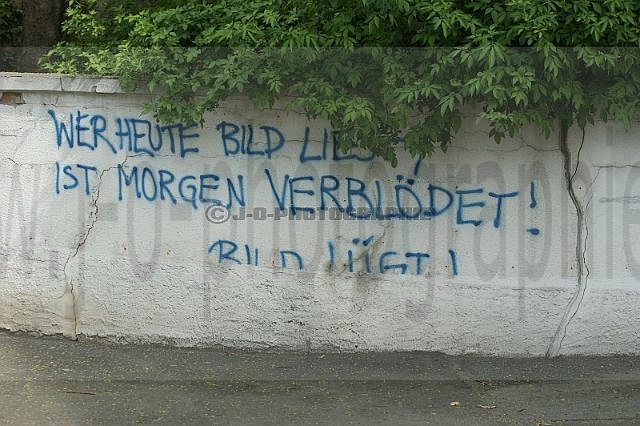 WER HEUTE BILD LIEST,
IST MORGEN VERBLÖDET!
BILD LÜGT!